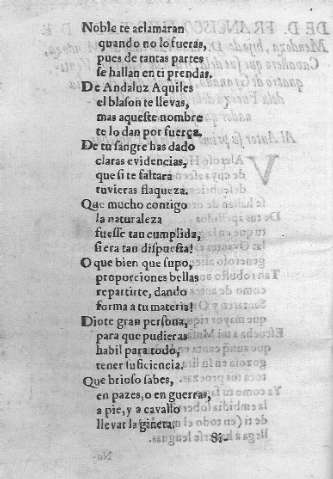 Noble te aclamaran
quando no lo fueras,
pues de tantas partes
se hallan en ti prendas.
De Andaluz Aquiles
el blason te llevas,
mas aqueste nombre
te lo dan por fuerça.
De tu sangre has dado
claras evidencias,
que si te faltara
tuvieras flaqueza.
Que mucho contigo
la naturaleza
fuesse tan cumplida,
si era tan dispuesta!
O que bien que supo,
proporciones bellas
repartirte, dando
forma a tu materia!
Diote gran persona,
para que pudieras
habil para todo,
tener suficiencia.
Que brioso sabes,
en pazes, o en guerras,
a pie, y a cavallo
llevar la gineta.
Si-